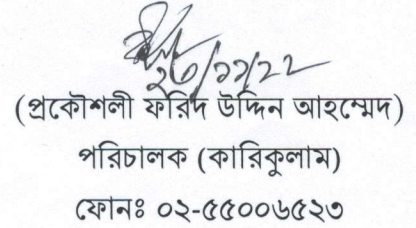 ২৩/১১/২২
(প্রকৌশলী ফরিদ উদ্দিন আহম্মেদ)
পরিচালক (কারিকুলাম)
ফোনঃ ০২-৫৫০০৬৫২৩